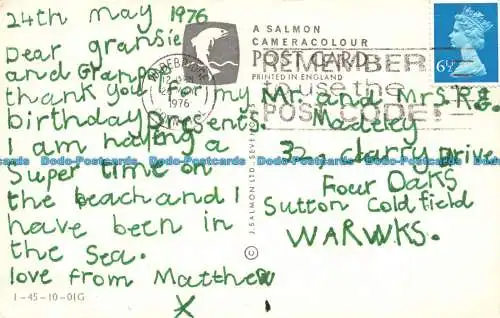 24th May 1976
Dear gransie
and Grampa
thank you for my
birthday presents.
I am having a
super time on
the beach and I
have been in
the sea.
love from Matthew
X
1-45-10-01G
A SALMON
CAMERACOLOUR
POST CARD
PRINTED IN ENGLAND
J. SALMON LTD., SEVENOAKS
©
1976
REMEMBER
to use the
POST CODE
6½
Mr and Mrs R
Madeley
Clarry Drive
Four Oaks
Sutton Coldfield
WARWKS.
Dodo-Postcards Dodo-Postcards Dodo-Postcards Dodo-Postcards Dodo-Postcards